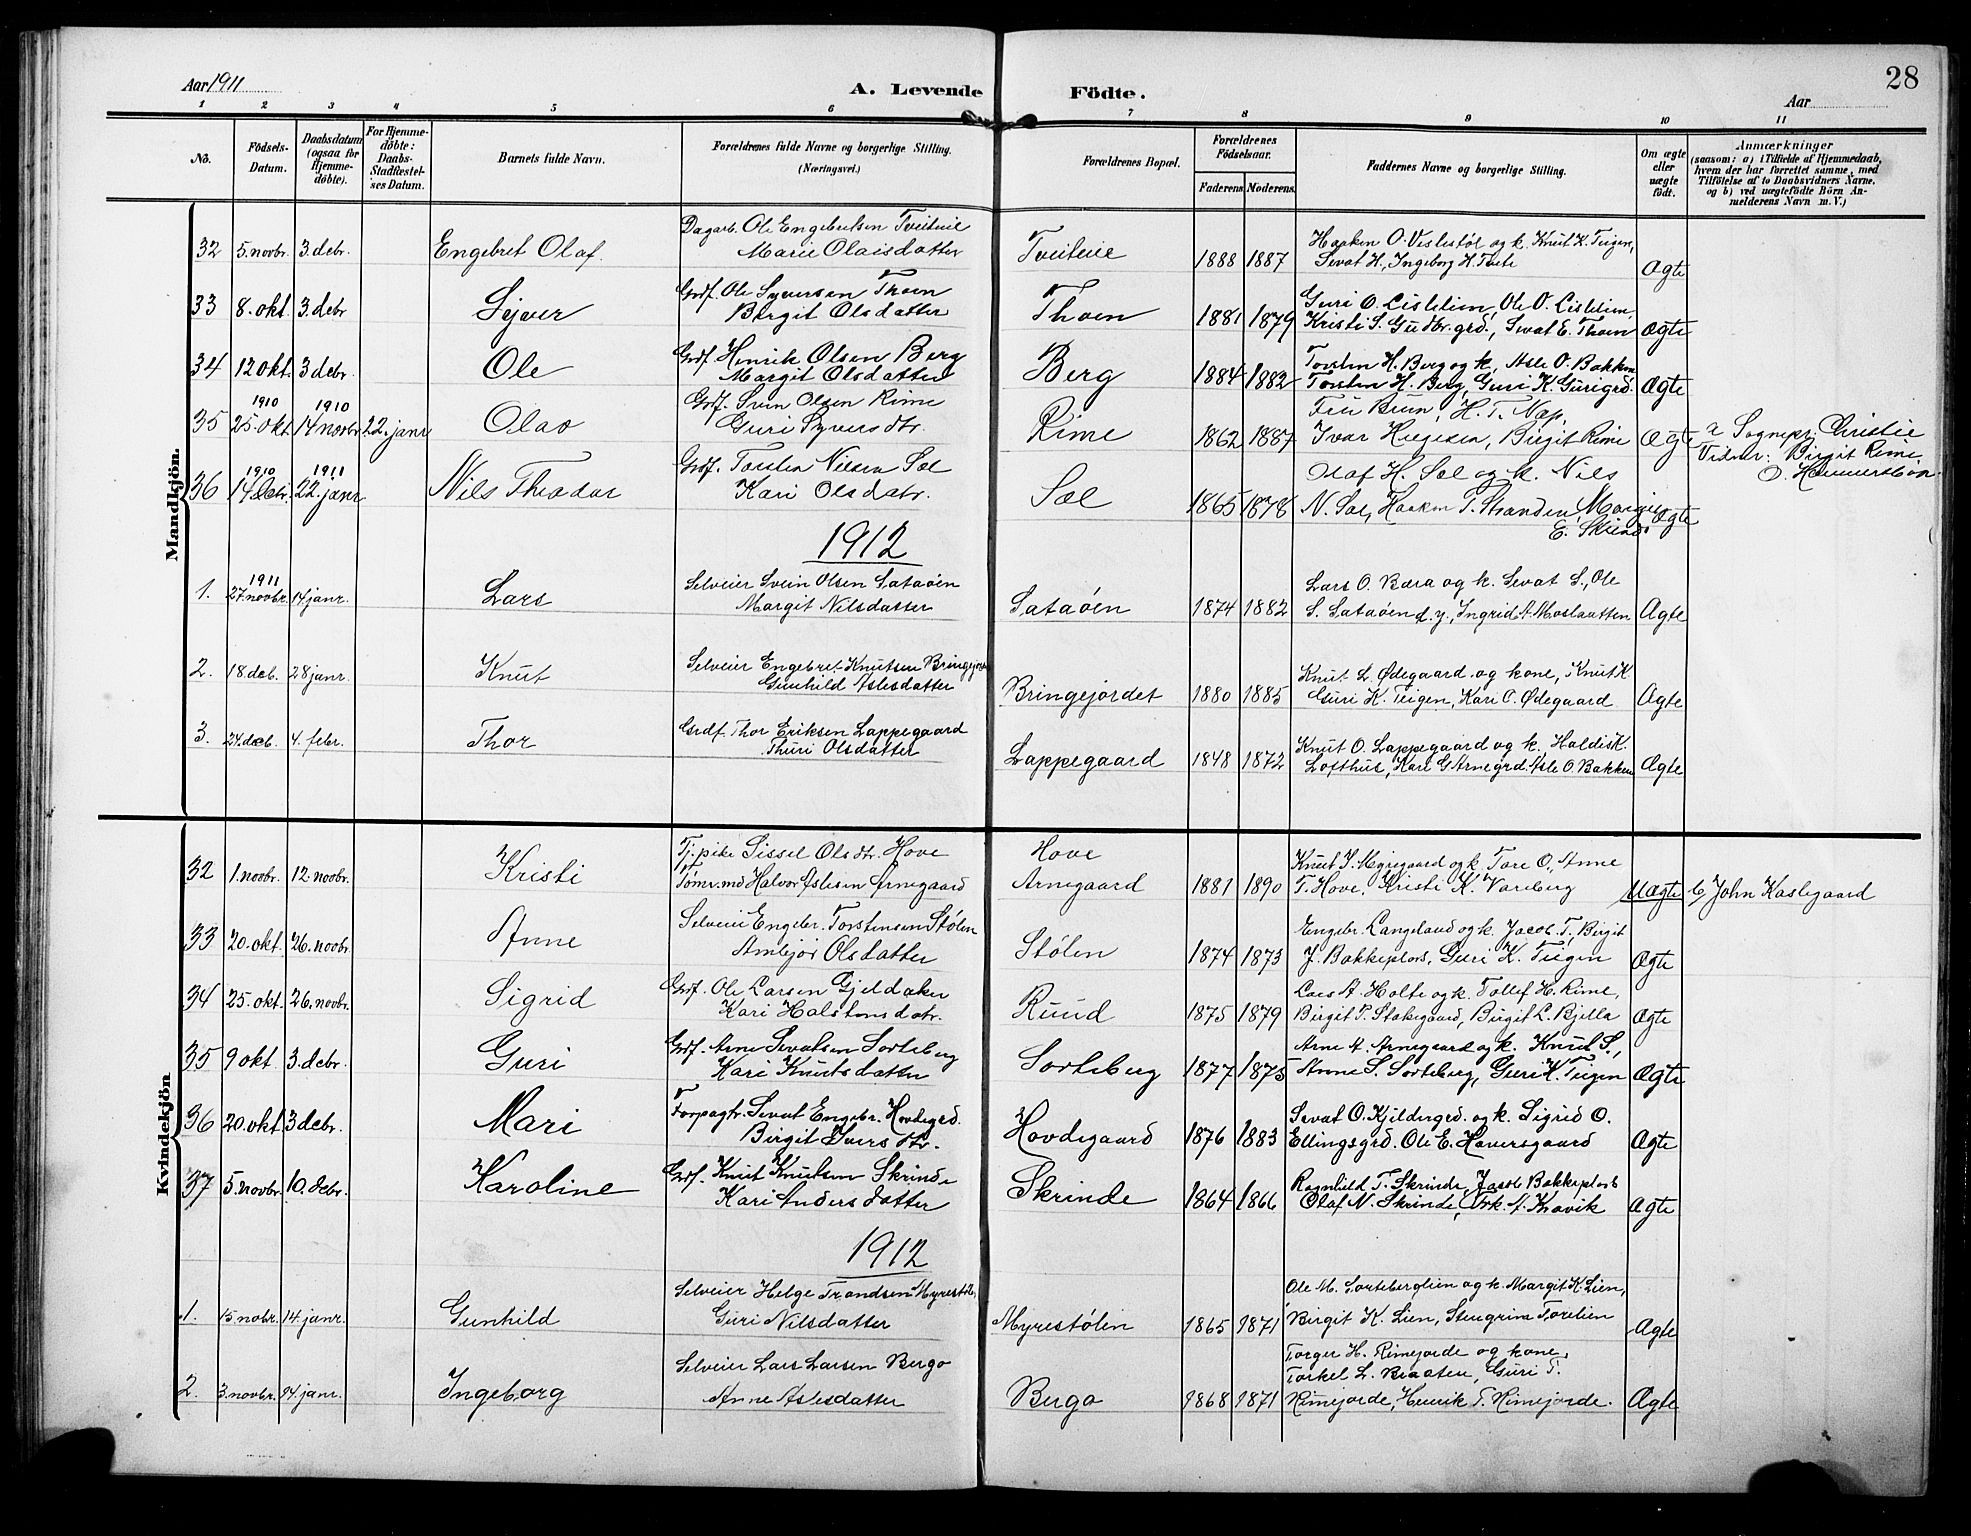 28
Aar 1911
A. Levende Födte.
Aar
1 2 3 4 5 6 7 8 9 10 11
No.
Födsels-Datum.
Daabsdatum (ogsaa for Hjemme-döbte).
For Hjemme-döbte: Daabs-Stadfæstel-ses Datum.
Barnets fulde Navn.
Forældrenes fulde Navne og borgerlige Stilling. (Næringsvei.)
Forældrenes Bopæl.
Forældrenes Födselsaar.
Faderens. Moderens.
Faddernes Navne og borgerlige Stilling.
Om ægte eller uægte födt.
Anmærkninger
(saasom: a) i Tilfælde af Hjemmedaab, hvem der har forrettet samme, med Tilföielse af to Daabsvidners Navne, og b) ved uægtefödte Börn An-melderens Navn m. V.)
Mandkjön.
32 5. novbr. 3. debr. Engebret Olaf.
Dagarb. Ole Engebretsen Tveiteie
Marie Olaisdatter
Tveiteie 1888 1887
Haaken O. Veslestøl og k. Knut K. Teigen,
Sevat H., Ingeborg H. Tveite
Ægte
33 8. okt. 3. debr. Syver
Grdf. Ole Syversen Thoen
Birgit Olsdatter
Thoen 1881 1879
Guri O. Lislelien, Ole O. Lislelien,
Kristi S. Gudbr.grd., Sevat E. Thoen
Ægte
34 12 okt. 3 debr. Ole
Grdf. Henrik Olsen Berg
Margit Olsdatter
Berg 1884 1882
Torsten H. Berg og k, Asle O. Bakken
Torsten H. Berg, Guri K. Gurigrd.
Ægte
35 1910 25. okt. 1910 14 novbr. 22. janr. Olav
Grdf. Svein Olsen Rime
Guri Syversdtr.
Rime 1862 1887
Fru Brun, H. T. Næp,
Ivar Helgesen, Birgit Rime
Ægte
a Sognepr. Christie
Vidner: Birgit Rime
O. Hammersbøn.
36 1910 14 debr. 1911 22. janr. Nils Theodor
Grdf. Torsten Nilsen Sol
Kari Olsdatr.
Sol 1865 1878
Olaf H. Sol og k. Nils
N. Sol, Haaken T. Stranden, Margit
E. Skrindo
Ægte
1912
1. 1911 27. novbr. 14 janr. Lars
Selveier Svein Olsen Sataøen
Margit Nilsdatter
Sataøen 1874 1882
Lars O. Bæra og k. Sevat S., Ole
S. Sataøen d. y., Ingrid A. Moslaatten
Ægte
2. 18. deb. 28 janr. Knut
Selveier Engebret Knutsen Bringejor
Gunhild Aslesdatter
Bringejordet 1880 1885
Knut L. Ødegaard og kone, Knut K.
Guri K. Teigen, Kari O. Ødegaard
Ægte
3. 24. deb. 4. febr. Thor
Grdf. Thor Eriksen Lappegaard
Thuri Olsdatter
Lappegaard 1848 1872
Knut O. Lappegaard og k, Haldis K.
Lofthus, Kari G Arnegrd. Asle O. Bakken
Ægte
Kvindekjön.
32 1. novbr. 12. novbr. Kristi
Tj.pike Sissel Olsdtr. Hove
Tømr.md Halvor Aslesen Arnegaard
Hove
Arnegaard 1881 1890
Knut S. Myregaard og k. Tore O., Anne
T. Hove, Kristi K. Vareberg
Uægte b/ John Kaslegaard
33 20. okt. 26. novbr. Anne
Selveier Engebr. Torstensen Stølen
Ambjør Olsdatter
Stølen 1874 1873
Engebr. Langeland og k, Jacob T., Birgit
J. Bakkeplads, Guri K. Teigen
Ægte
34 25. okt. 26. novbr. Sigrid
Grdf. Ole Larsen Gjeldaker
Kari Halstensdatr.
Ruud 1875 1879
Lars A. Holte og k. Tollef H. Rime,
Birgit T. Stakegaard, Birgit L. Bjella
Ægte
35 9 okt. 3. debr. Guri
Grdf. Arne Sevatsen Sorteberg
Kari Knutsdatter
Sorteberg 1877 1875
Arne A. Arnegaard og k. Knut S.,
Anne S. Sorteberg, Guri K. Teigen
Ægte
36 20. okt. 3 debr. Mari
Forpagtr. Sevat Engebr. Hovdegrd
Birgit Iversdtr.
Hovdegaard 1876 1883
Sevat O. Kjildergrd. og k. Sigrid O.
Ellingsgrd. Ole E. Haversgaard
Ægte
37 5. novbr. 10. debr. Karoline
Grdf. Knut Knutsen Skrinde
Kari Andersdatter
Skrinde 1864 1866
Ragnhild T. Skrinde, Jacob Bakkeplads
Olaf N. Skrinde, Frk. A. Kravik
Ægte
1912
1. 15. nobr. 14. janr. Gunhild
Selveier Helge Trondsen Myrestøl.
Guri Nilsdatter
Myrestølen 1865 1871
Ole M. Sorteberglien og k. Margit K. Lien,
Birgit K. Lien, Stengrim Torelien
Ægte
2. 3. novbr. 14 janr. Ingeborg
Selveier Lars Larsen Bergo
Anne Aslesdatter
Bergo 1868 1871
Torger H. Rimejorde og kone,
Torkel L. Braaten, Guri T.
Rimejorde, Henrik T. Rimejorde.
Ægte